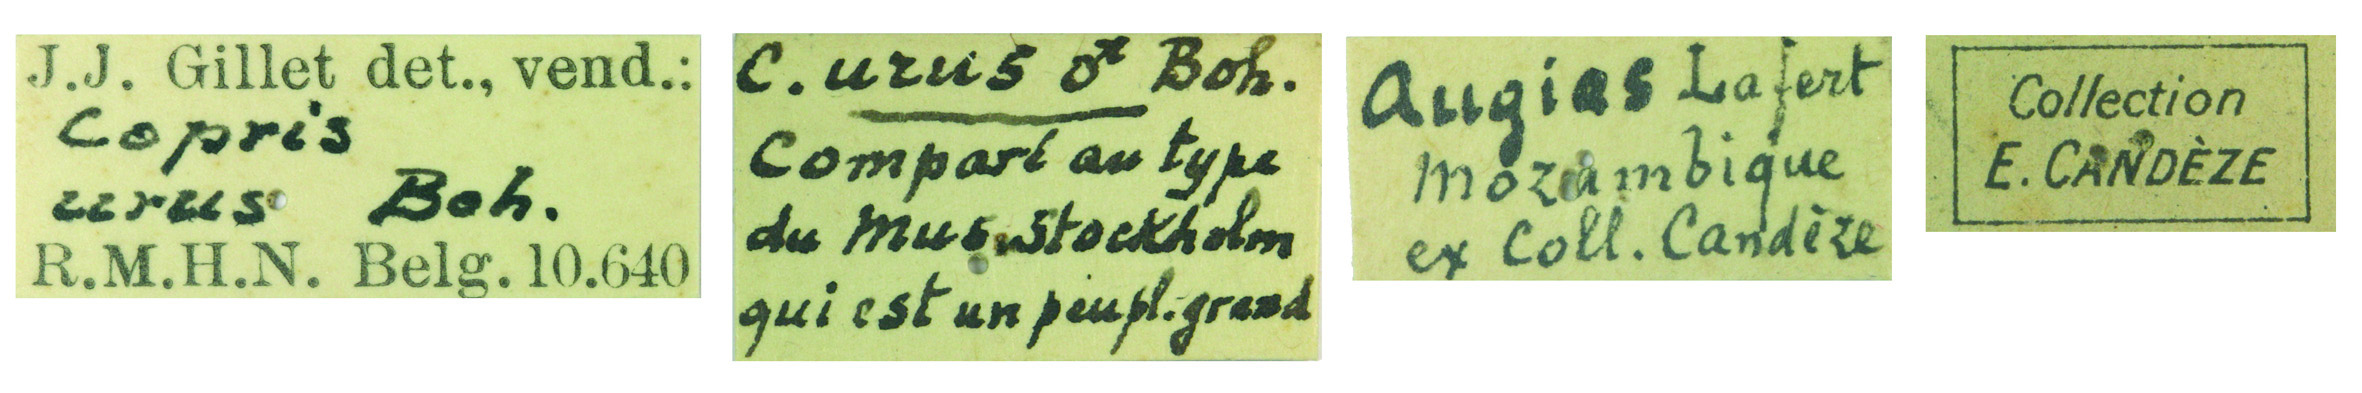 J.J. Gillet det., vend.:
Copris
urus Boh.
R.M.H.N. Belg. 10.640
C. urus ♂ Boh.
Comparé au type
du Mus. Stockholm
qui est un peu pl. grand
Augias Lafert
Mozambique
ex Coll. Candèze
Collection
E. CANDÈZE